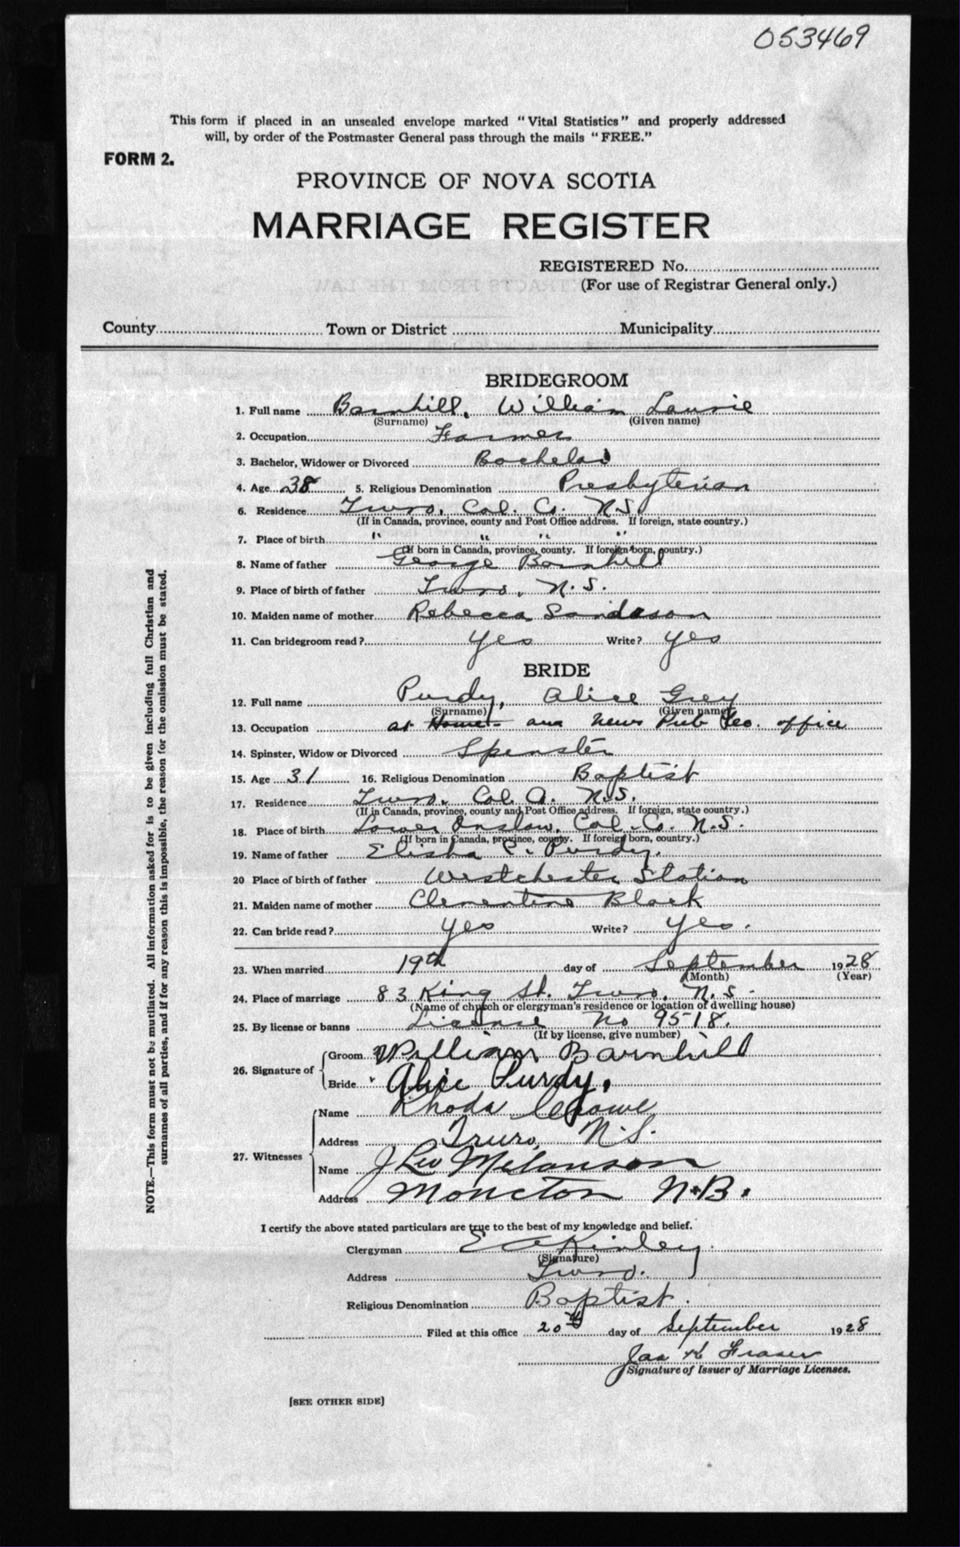 053469
This form if placed in an unsealed envelope marked "Vital Statistics" and properly addressed
will, by order of the Postmaster General pass through the mails "FREE."
FORM 2.
PROVINCE OF NOVA SCOTIA
MARRIAGE REGISTER
REGISTERED No.
(For use of Registrar General only.)
County Town or District Municipality
BRIDEGROOM
1. Full name Barnhill, William Laurie
(Surname) (Given name)
2. Occupation Farmer
3. Bachelor, Widower or Divorced Bachelor
4. Age 38 5. Religious Denomination Presbyterian
6. Residence Truro, Col. Co. N.S.
(If in Canada, province, county and Post Office address. If foreign, state country.)
7. Place of birth " " " "
(If born in Canada, province, county. If foreign born, country.)
8. Name of father George Barnhill
9. Place of birth of father Truro, N.S.
10. Maiden name of mother Rebecca
11. Can bridegroom read? yes Write? yes
BRIDE
12. Full name Purdy, Alice Grey
(Surname) (Given name)
13. Occupation at Home and News Pub Co. office
14. Spinster, Widow or Divorced Spinster
15. Age 31 16. Religious Denomination Baptist
17. Residence Truro, Col. Co. N.S.
(If in Canada, province, county and Post Office address. If foreign, state country.)
18. Place of birth Lower Onslow, Col. Co. N.S.
(If born in Canada, province, county. If foreign born, country.)
19. Name of father Elisha C. Purdy.
20 Place of birth of father Westchester Station
21. Maiden name of mother Clementine Black
22. Can bride read? yes Write? yes.
23. When married 19th day of September 1928
(Month) (Year)
24. Place of marriage 83 King St. Truro, N.S.
(Name of church or clergyman's residence or location of dwelling house)
25. By license or banns License No 9518.
(If by license, give number)
26. Signature of Groom William Barnhill
Bride Alice Purdy.
27. Witnesses Name Rhoda Crowe
Address Truro, N.S.
Name J Leo Melanson
Address Moncton N.B.
I certify the above stated particulars are true to the best of my knowledge and belief.
Clergyman E A Kinley.
(Signature)
Address Truro.
Religious Denomination Baptist.
Filed at this office 20th day of September 1928
Jas K Fraser
Signature of Issuer of Marriage Licenses.
[SEE OTHER SIDE]
NOTE.—This form must not be mutilated. All information asked for is to be given including full Christian and
surnames of all parties, and if for any reason this is impossible, the reason for the omission must be stated.